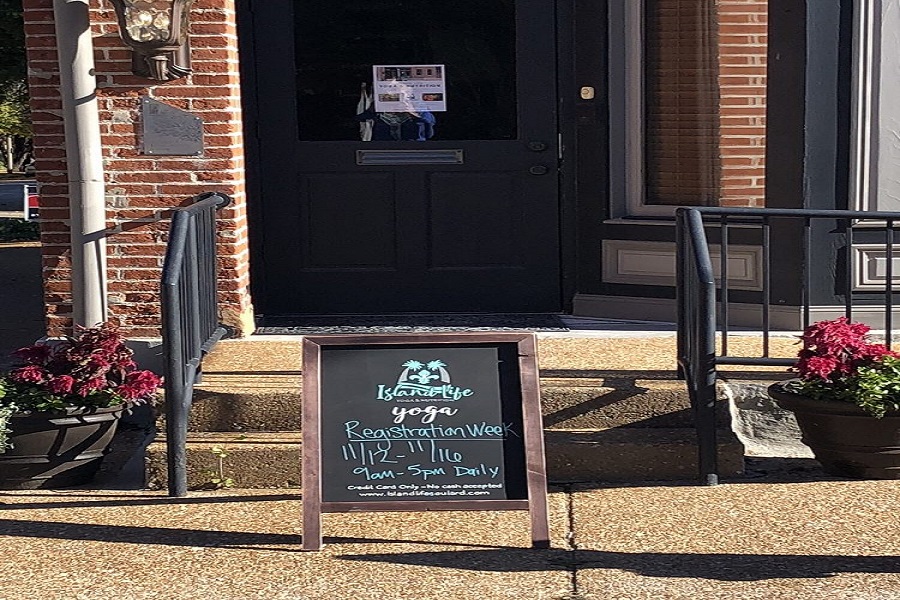 YOGA & NUTRITION
Island Life
YOGA & NUTRITION
yoga
Registration Week
11/12 - 11/16
9am - 5pm Daily
Credit Card Only - No cash accepted
www.islandlifesoulard.com